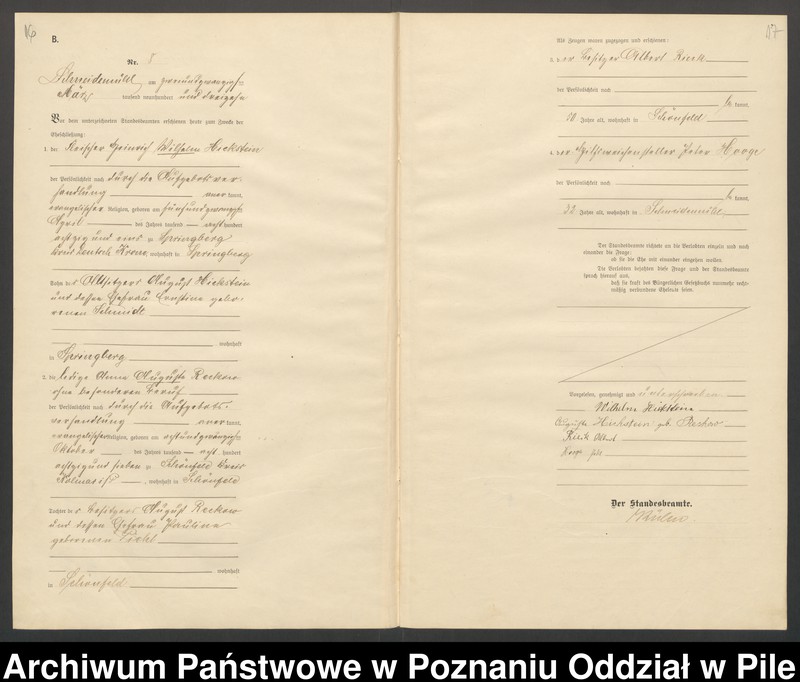 16
B.
Nr. 5
Schneidemühl am zweiundzwanzigsten
März tausend neunhundert und dreizehn
Vor dem unterzeichneten Standesbeamten erschienen heute zum Zwecke der
Eheschließung:
1. der Fleischer Heinrich Wilhelm Hickstein
der Persönlichkeit nach durch die Aufgebotsver-
handlung anerkannt,
evangelischer Religion, geboren am fünfundzwanzigsten
April des Jahres tausend acht hundert
achtzig und eins zu Springberg
Kreis Deutsch Krone, wohnhaft in Springberg
Sohn des Altsitzers August Hickstein
und dessen Ehefrau Ernstine gebo-
renen Schmidt
wohnhaft
in Springberg
2. die ledige Anna Auguste Reckow
ohne besonderen Beruf
der Persönlichkeit nach durch die Aufgebots-
verhandlung anerkannt,
evangelischer Religion, geboren am achtundzwanzigsten
Oktober des Jahres tausend acht hundert
achtzig und sieben zu Schönfeld Kreis
Kolmar i/P, wohnhaft in Schönfeld
Tochter des Besitzers August Reckow
und dessen Ehefrau Pauline
geborenen
wohnhaft
in Schönfeld
17
Als Zeugen waren zugezogen und erschienen:
3. der Besitzer Albert Rieck
der Persönlichkeit nach
be kannt,
Jahre alt, wohnhaft in Schönfeld
4. der Hilfsweichensteller Peter
der Persönlichkeit nach
be kannt,
32 Jahre alt, wohnhaft in Schneidemühl
Der Standesbeamte richtete an die Verlobten einzeln und nach
einander die Frage:
ob sie die Ehe mit einander eingehen wollen.
Die Verlobten bejahten diese Frage und der Standesbeamte
sprach hierauf aus,
daß sie kraft des Bürgerlichen Gesetzbuchs nunmehr recht-
mäßig verbundene Eheleute seien.
Vorgelesen, genehmigt und unterschrieben
Wilhelm Hickstein
Auguste Hickstein geb. Reckow
Rieck Albert
Der Standesbeamte.
Archiwum Państwowe w Poznaniu Oddział w Pile